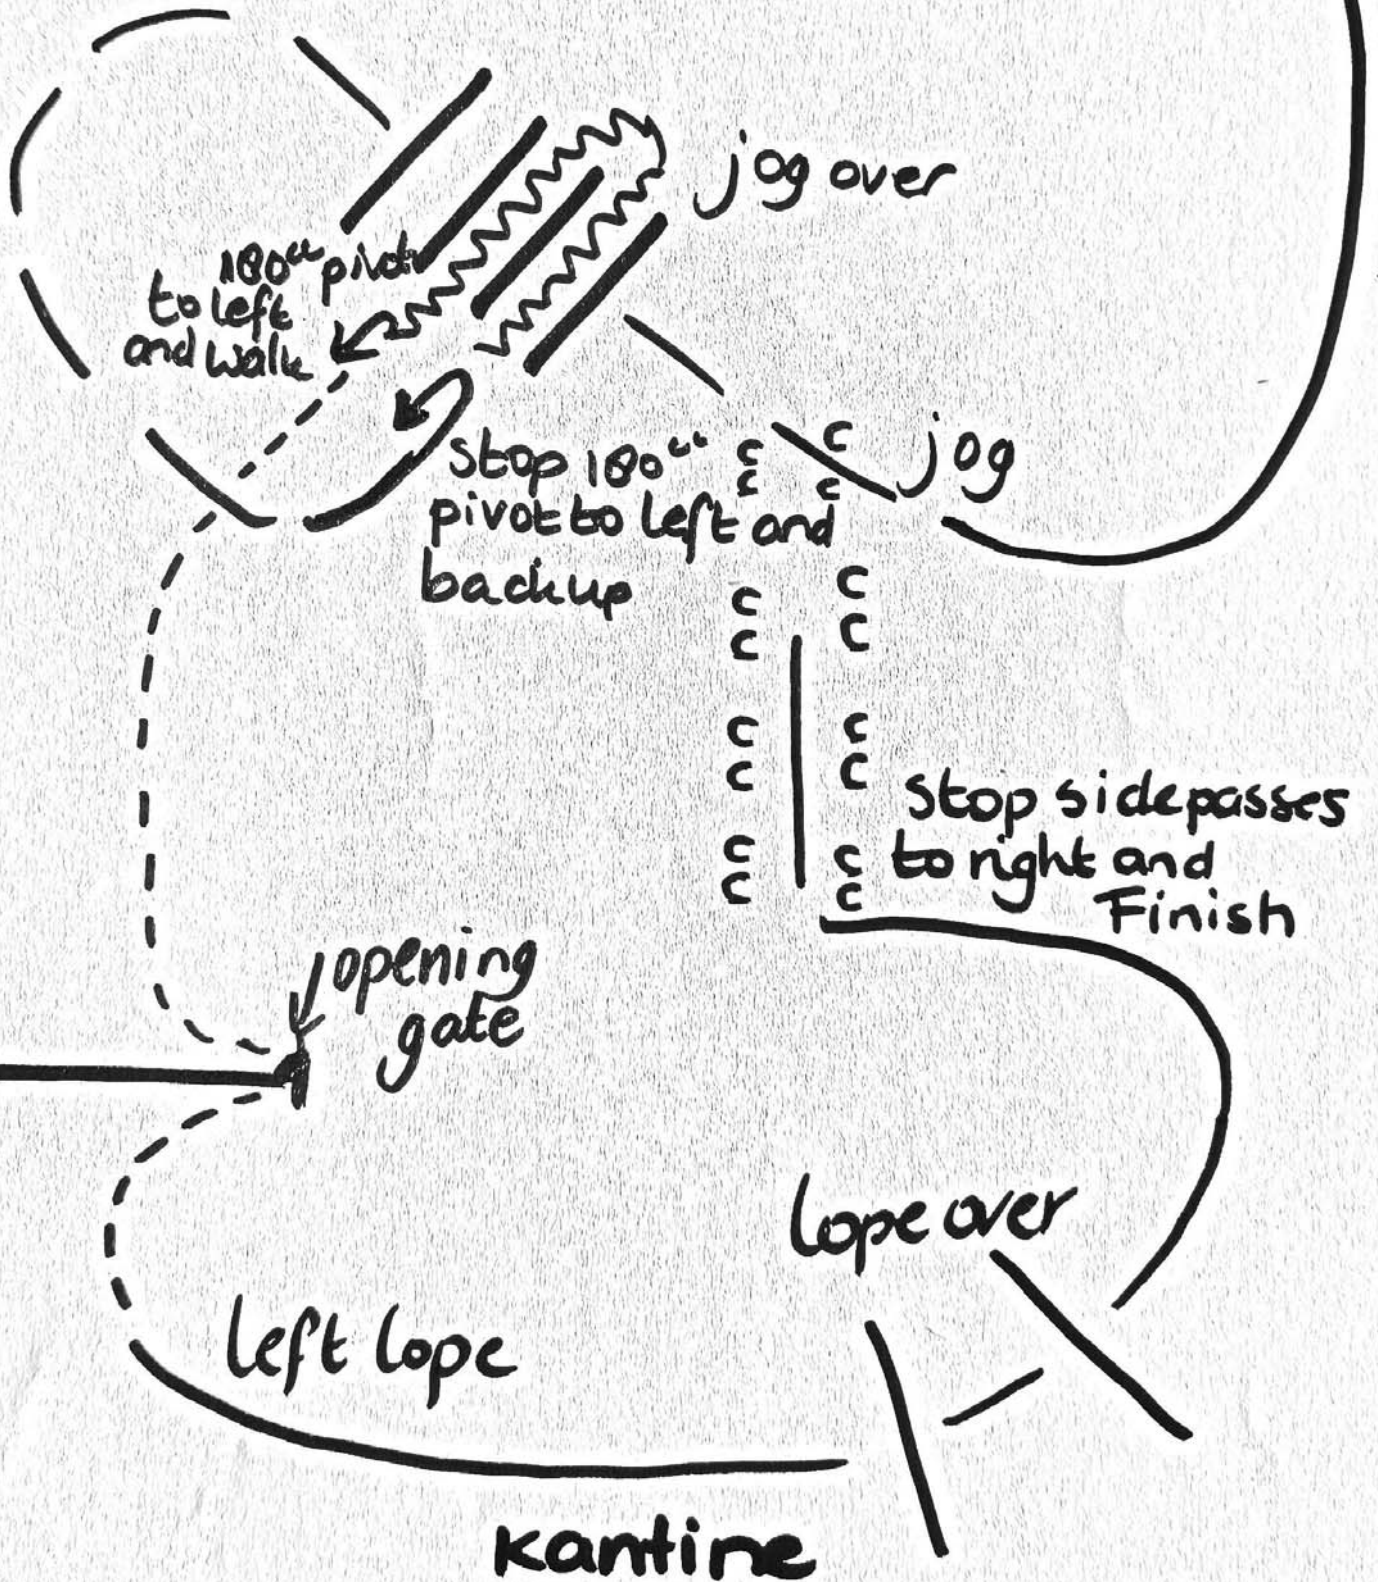 jog over
180° pivot
to left
and walk
jog
stop 180°
pivot to left and
backup
stop sidepasses
to right and
Finish
opening
gate
lope over
left lope
kantine